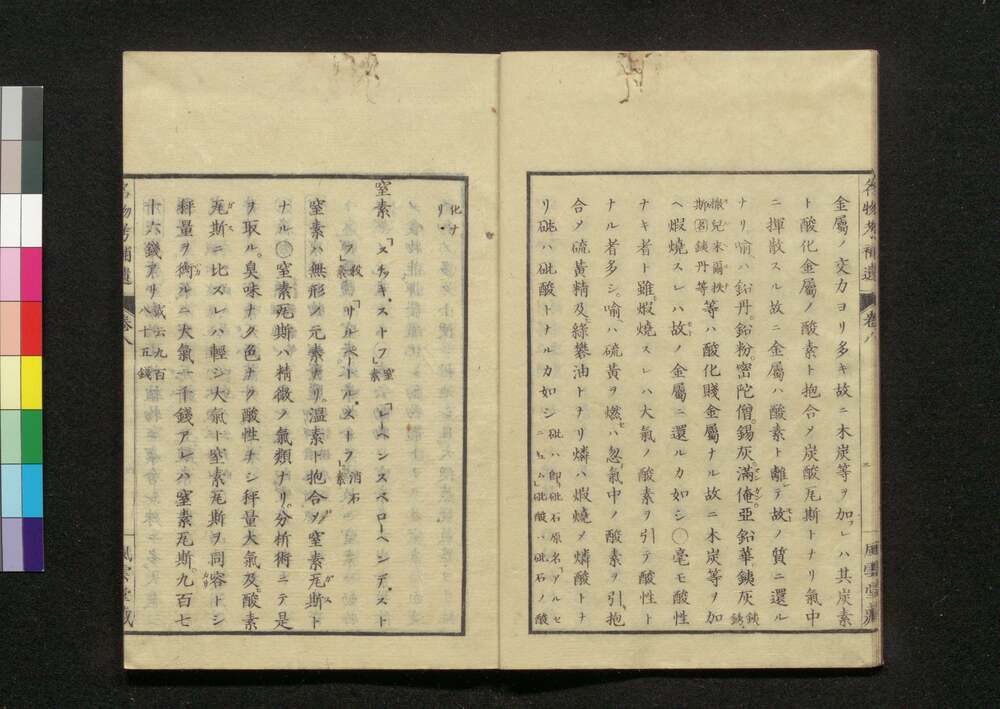 金屬ノ交力ヨリ多キ故ニ木炭等ヲ加フレハ其炭素
ト酸化金屬ノ酸素ト抱合メ炭酸瓦斯トナリ氣中
ニ揮散スル故ニ金屬ハ酸素ト離テ故ノ質ニ還ル
ナリ喻ハ鉛丹。鉛粉。密陀僧。錫灰滿俺亞鉛華銕灰
銕丹等等ハ酸化賤金屬ナル故ニ木炭等ヲ加
ヘ煆燒スレハ故ノ金屬ニ還ルカ如シ〇毫モ酸性
ナキ者ト雖煆燒スレハ大氣ノ酸素ヲ引テ酸性ト
ナル者多シ。喻ハ硫黃ヲ燃ハ忽氣中ノ酸素ヲ引抱
合メ硫黃精及綠礬油トナリ燐ハ煆燒メ燐酸トナ
リ砒ハ砒酸トナルカ如シ砒ハ卽砒石原名アルセニキュム砒酸ハ砒石ノ酸
化ナリ
窒素 スチッキストフ窒素 レーベンスベローヘンデスト
フ殺素 サルペートルストフ消石素
窒素ハ無形ノ元素ナリ。溫素ト抱合メ窒素瓦斯ト
ナル〇窒素瓦斯ハ精微ノ氣類ナリ。分析術ニテ是
ヲ取ル。臭味ナク色ナク酸性ナシ秤量大氣及酸素
瓦斯ニ比スレハ輕シ大氣ト窒素瓦斯ヲ同容トシ
秤量ヲ衡ルニ大氣一千錢アレハ窒素瓦斯九百七
十六錢アリ或云九百八十五錢
名物考補遺 卷八 風雲堂藏